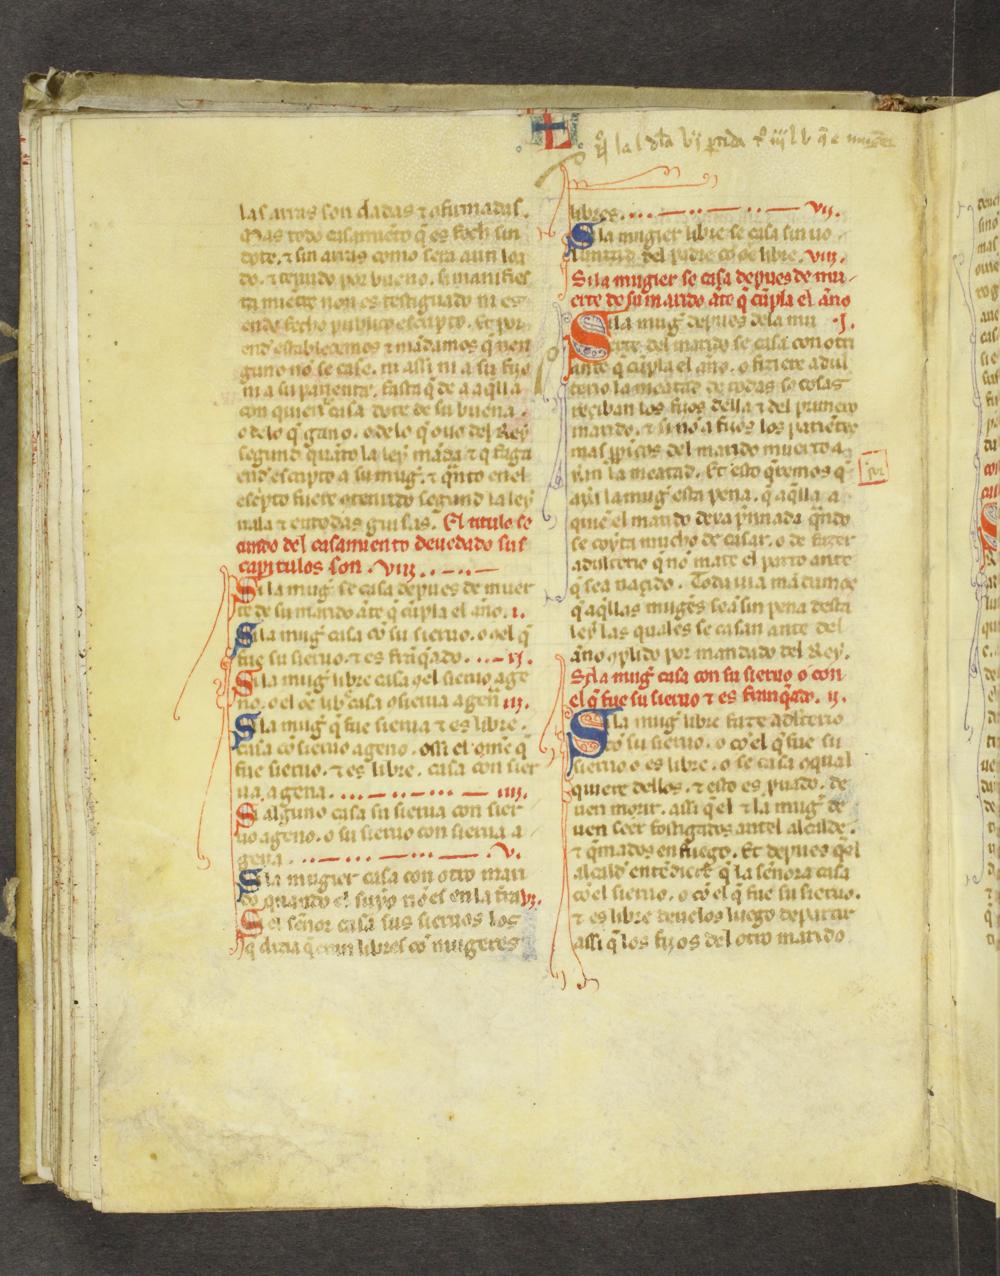 las arras son dadas ⁊ ofirmadas.
Mas todo casamiẽto q̃ es fecho sin
dote, ⁊ sin arras como sera aun loa
do. ⁊ tenudo por bueno. si manifies
ta miente non es testiguado ni es
ende fecho publico escripto. Et por
end establecemos ⁊ mãdamos q̃ nen
guno no se case. ni assi ni a su fijo
ni a su pariente, fasta q̃ de a aq̃lla
con quien casa dote de su buena.
o delo q̃ gano. o delo q̃ ouo del Rey
segund quãto la ley mãda ⁊ q̃ faga
end escripto a su mug̃. ⁊ q̃nto en el
esc̃pto fuere otenudo segund la ley
uala ⁊ en todas guisas. El titulo se
cundo del casamiento deuedado sus
capitulos son. viii.
Si la mug̃ se casa depues de muer
te de su marido ãte q̃ cũpla el año. i.
Si la mug̃ casa cõ su sieruo. o cõ el q̃
fue su sieruo. ⁊ es frãq̃ado. ii.
Si la mug̃ libre casa cõ el sieruo age
no. o el oẽ libr̃ casa cõ sierua agen̄. iii.
Si la mug̃ q̃ fue sierua ⁊ es libre.
casa cõ sieruo ageno. o si el om̃e q̃
fue sieruo. ⁊ es libre. casa con sier
ua agena. iiii.
Si alguno casa su sierua con sier
uo ageno. o su sieruo con sierua a
gena. v.
Si la mugier casa con otro mari
do quando el suyo nõ es en la trã. vi.
Si el señor casa sus sieruos los
q̃ dizia q̃ eran libres cõ mugeres
libres. vii.
Si la mugier libre se casa sin uo
luntad del padre cõ oẽ libre. viii.
Si la mugier se casa depues de mu
erte de su marido ãte q̃ cũpla el año
Si la mug̃ depues dela mu .i.
erte del marido se casa con otri
ante q̃ cũpla el año. o fiziere adul
terio la meatad de todas se cosas
reçiban los fijos della ⁊ del primero
marido. ⁊ si nõ a fijos los pariẽtes
mas p̃pi̾cos del marido muerto a
yan la meatad. Et esto q̃remos q̃
aya la mug̃ esta pena. q̃ aq̃lla a
quiẽ el marido dexa p̃nnada q̃ndo
se coyta mucho de casar. o de fazer
adulterio q̃ nõ mate el parto ante
q̃ sea naçido. Toda uia mãdamos
q̃ aq̃llas mug̃es seã sin pena desta
ley las quales se casan ante del
año cõplido por mandado del Rey.
Si la mug̃ casa con su sieruo o con
el q̃ fue su sieruo ⁊ es franq̃ado. ii.
Si la mug̃ libre faze adulterio
cõ su sieruo. o cõ el q̃ fue su
sieruo o es libre. o se casa cõ qual
quiere dellos. ⁊ esto es prouado. de
uen morir. assi q̃ el ⁊ la mug̃ de
uen seer fostigados antel alcalde.
⁊ q̃mados en fuego. Et depues q̃ el
alcald entẽdiere q̃ la señora casa
cõ el sieruo. o cõ el q̃ fue su sieruo.
⁊ es libre deuelos luego departir
assi q̃ los fijos del otro marido